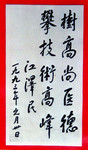 樹高尚医德
攀技術高峰
江澤民
一九九三年九月廿日